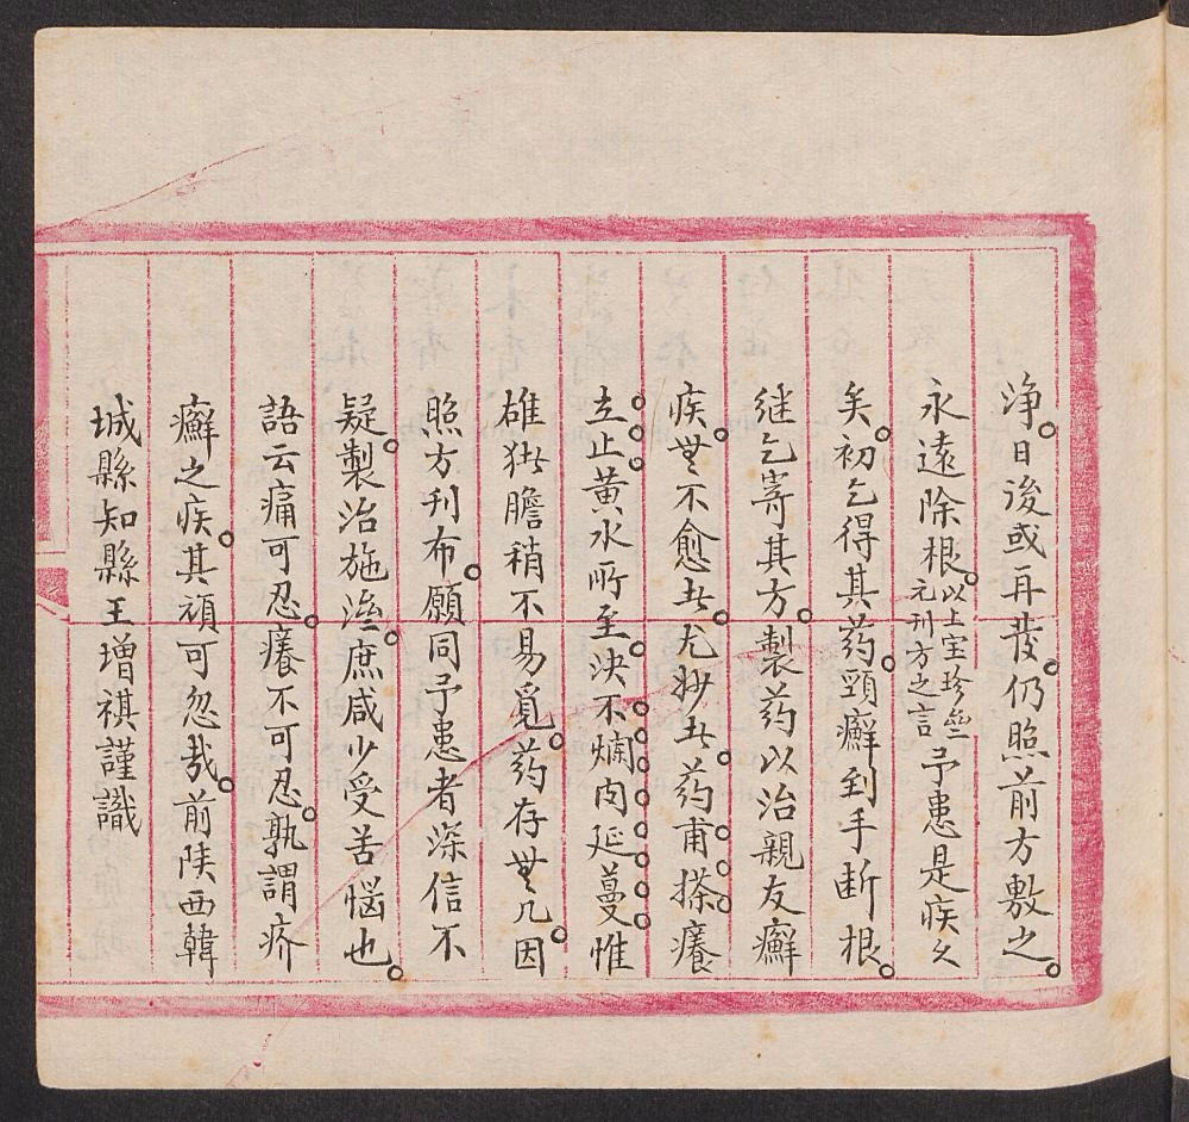 净。日後或再發。仍照前方敷之。
永遠除根。以上宝珍斋元刊方之言予患是疾久
矣。初乞得其药。頸癬到手断根。
继乞寄其方。製药以治親友癬
疾。無不愈者。尤妙者。药甫搽。癢
立止。黄水所至。决不爛肉延蔓。惟
雄猪膽稍不易覓。药存無几。因
照方刊布。願同予患者深信不
疑。製治施濟。庶咸少受苦惱也。
語云痛可忍。癢不可忍。孰謂疥
癬之疾。其頑可忽哉。前陕西韓
城縣知縣王增祺謹識